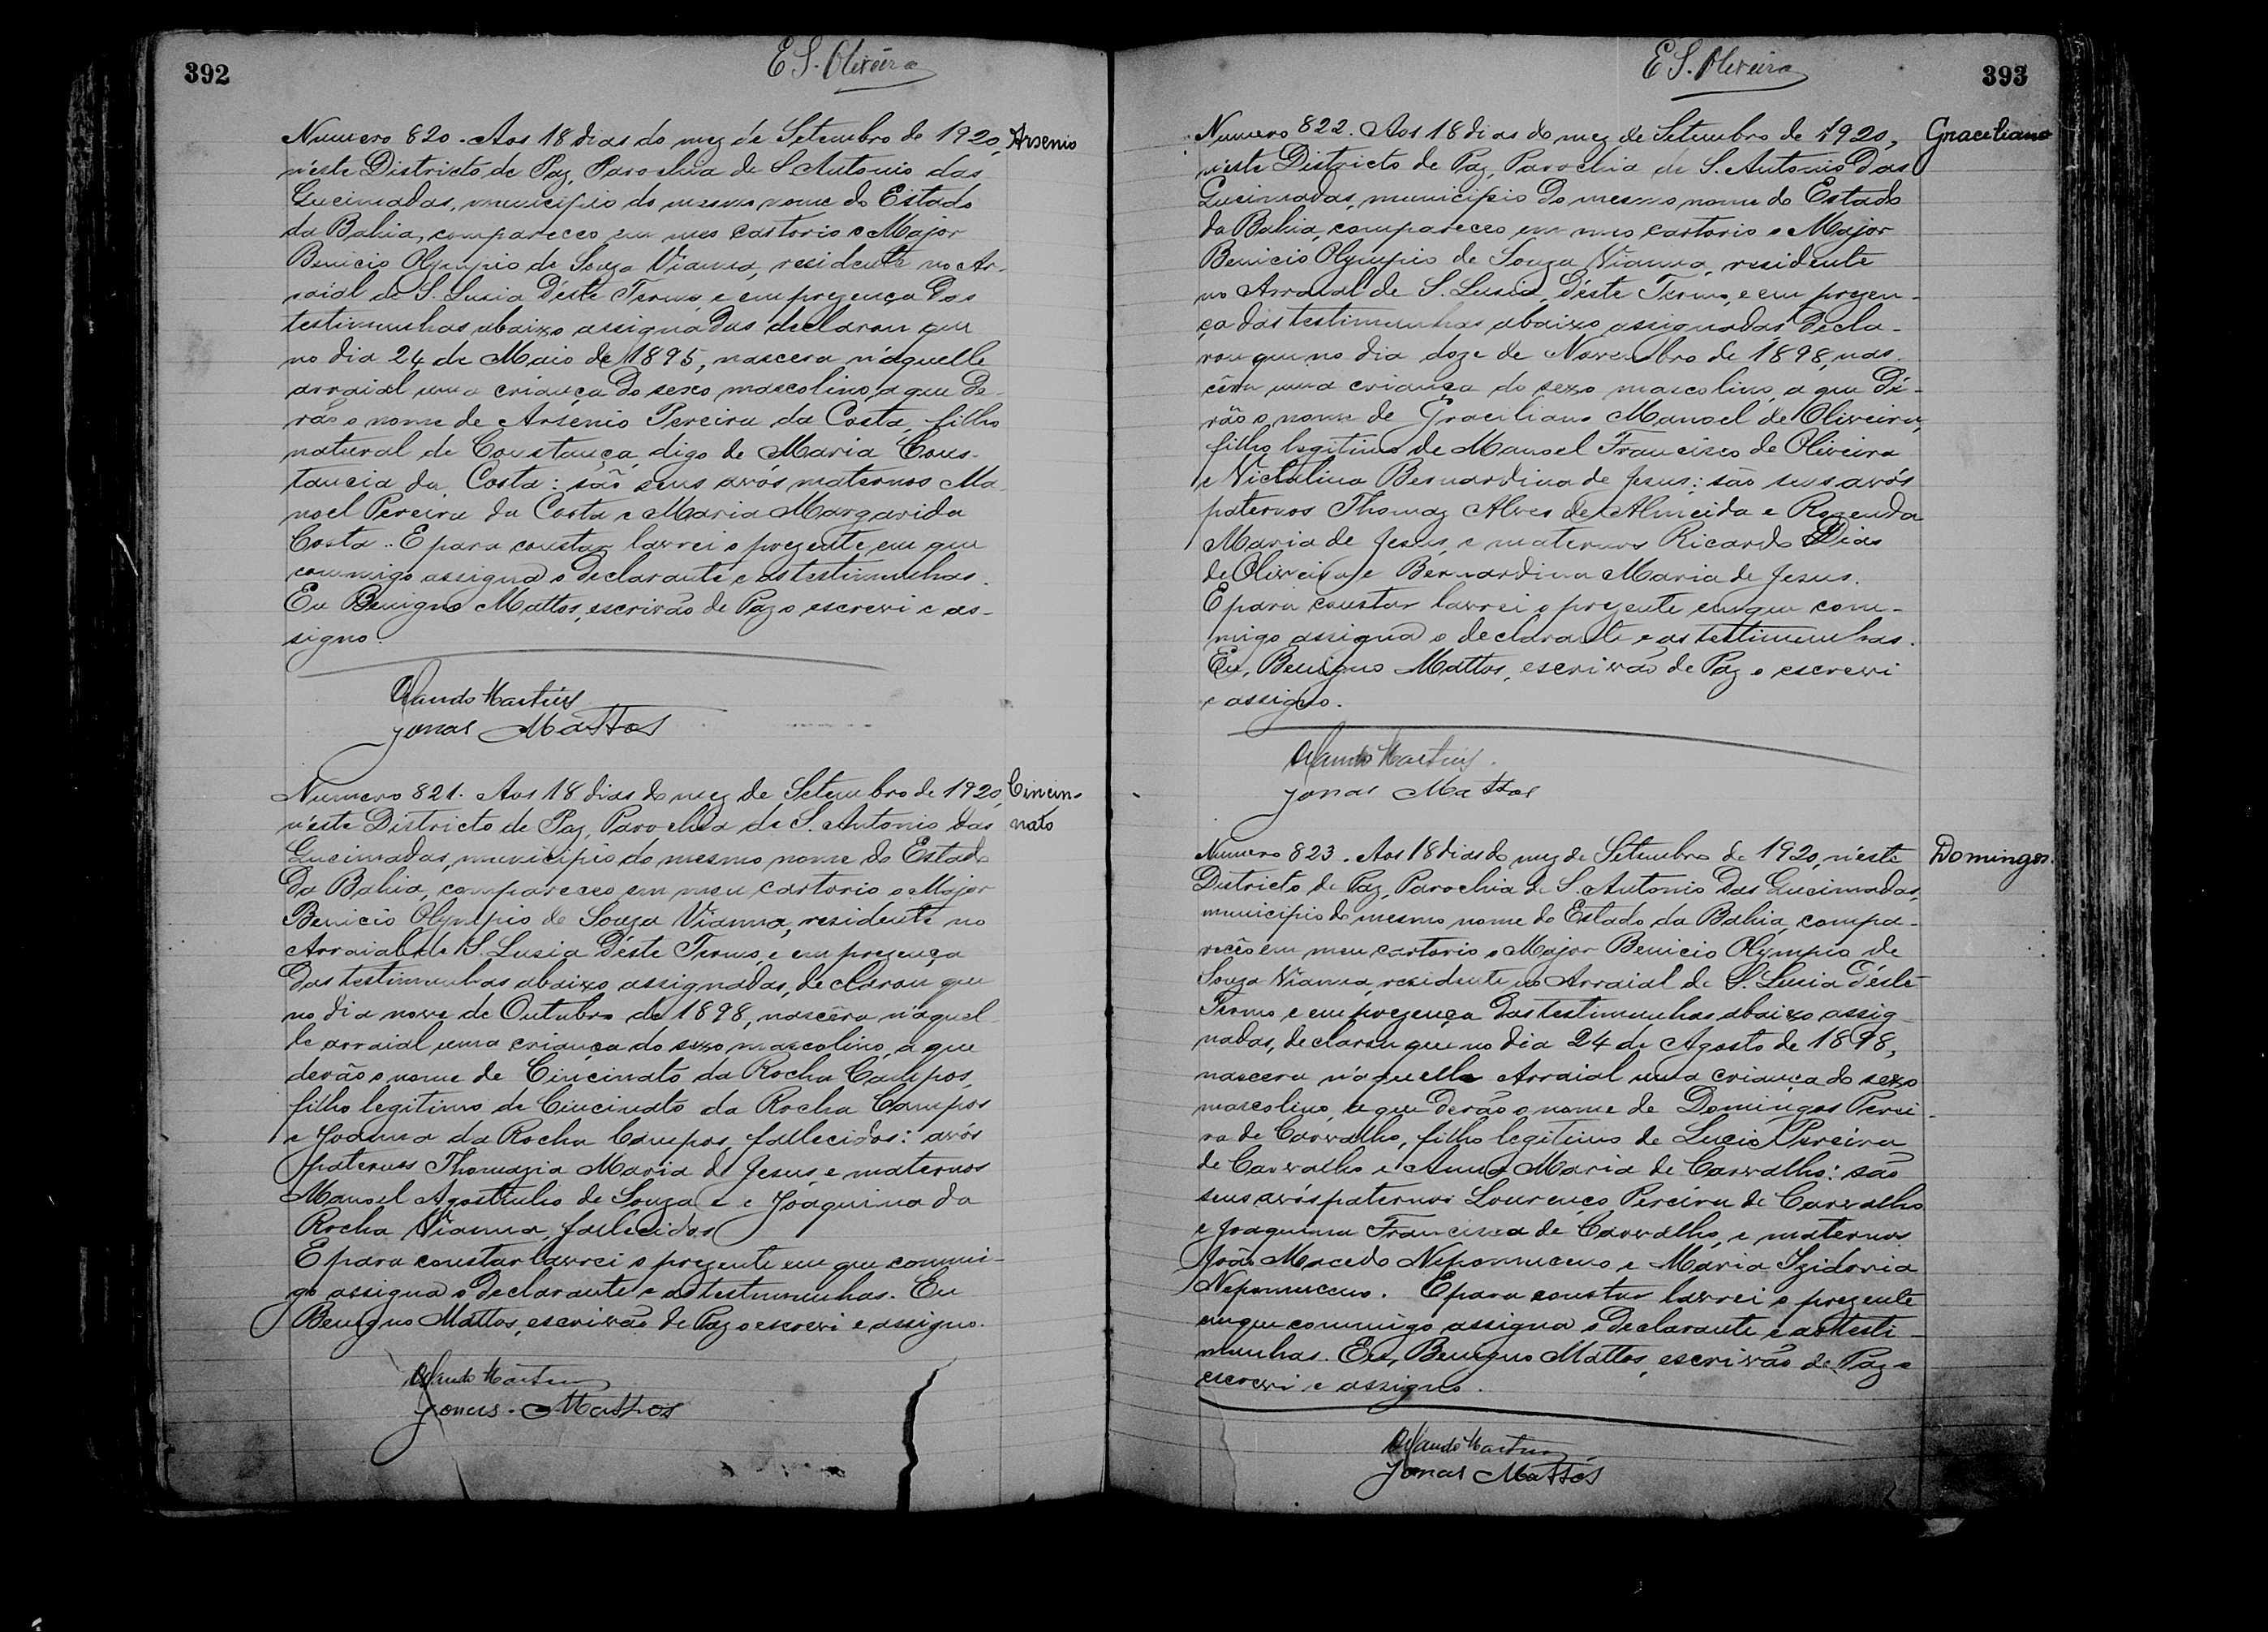 392
E S. Oliveira
Numero 820. Aos 18 dias do mez de Setembro de 1920, Arsenio
n'este Districto de Paz, Parochia de S. Antonio das
Queimadas, municipio do mesmo nome do Estado
da Bahia, compareceo em meo Cartorio o Major
Benicio Olympio de Souza Vianna, residente no Ar-
raial de S. Lusia d'éste Termo, e em prezença das
testimunhas abaixo assignadas, declarou que
no dia 24 de Maio de 1895, nascera n'aquelle
arraial uma criança do sexo mascolino, a que de-
rão o nome de Arsenio Pereira da Costa, filho
natural de Constança digo de Maria Cons-
tancia da Costa: são seus avós maternos Ma-
noel Pereira da Costa e Maria Margarida
Costa. E para constar lavrei o prezente em que
commigo assigna o declarante e as testimunhas.
Eu Benigno Mattos, escrivão de Paz o escrevi e as-
signo.
Orlando Martins
Jonas Mattos
Numero 821. Aos 18 dias do mez de Setembro de 1920, Cincin-
n'este Districto de Paz, Parochia de S. Antonio das nato
Queimadas, municipio do mesmo nome do Estado
da Bahia, compareceo em meu cartorio o Major
Benicio Olympio de Souza Vianna, residente no
Arraial de S. Lusia d'éste Termo, e em prezença
das testimunhas abaixo assignadas, declarou que
no dia nove de Outubro de 1898, nascêra n'aquel-
le arraial uma criança do sexo mascolino, a que
derão o nome de Cincinato da Rocha Campos,
filho legitimo de Cincinato da Rocha Campos
e Joanna da Rocha Campos, fallecidos: avós
paternos Thomazia Maria de Jesus, e maternos
Manoel Agostinho de Souza e e Joaquina da
Rocha Vianna, fallecidos
E para constar lavrei o prezente em que commi-
go assigna o declarante e as testimunhas. Eu
Benigno Mattos, escrivão de Paz o escrevi e assigno.
Orlando Martins
Jonas Mattos
393
E S. Oliveira
Numero 822. Aos 18 dias do mez de Setembro de 1920, Graciliano
n'este Districto de Paz, Parochia de S. Antonio das
Queimadas, municipio do mesmo nome do Estado
da Bahia, compareceo em meo cartorio o Major
Benicio Olympio de Souza Vianna, residente
no Arraial de S. Lusia, d'éste Termo, e em prezen-
ça das testimunhas abaixo assignadas decla-
rou que no dia doze de Novembro de 1898, nas-
cêra uma criança do sexo mascolino, a que de-
rão o nome de Graciliano Manoel de Oliveira,
filho legitimo de Manoel Francisco de Oliveira
e Victalina Bernardina de Jesus: são seus avós
paternos Thomaz Alves de Almeida e Rozenda
Maria de Jesus, e maternos Ricardo Dias
de Oliveira e Bernardina Maria de Jesus.
E para constar lavrei o prezente em que com-
migo assigna o declarante e as testimunhas.
Eu, Benigno Mattos, escrivão de Paz o escrevi
e assigno.
Orlando Martins
Jonas Mattos
Numero 823. Aos 18 dias do mez de Setembro de 1920, n'éste Domingos
Districto de Paz, Parochia de S. Antonio das Queimadas,
municipio do mesmo nome do Estado da Bahia, compa-
recêo em meu cartorio o Major Benicio Olympio de
Souza Vianna, residente no Arraial de S. Lusia d'éste
Termo e em prezença das testimunhas abaixo assig-
nadas, declarou que no dia 24 de Agosto de 1898,
nascera n'aquelle Arraial uma criança do sexo
mascolino, a que derão o nome de Domingos Perei-
ra de Carvalho, filho legitimo de Lucio Pereira
de Carvalho e Anna Maria de Carvalho: são
seus avós paternos Lourenço Pereira de Carvalho
e Joaquina Francisca de Carvalho, e maternos
João Macedo Nepomuceno e Maria Izidoria
Nepomuceno. E para constar lavrei o prezente
em que commigo assigna o declarante e as testi-
munhas. Eu, Benigno Mattos, escrivão de Paz o
escrevi e assigno.
Orlando Martins
Jonas Mattos